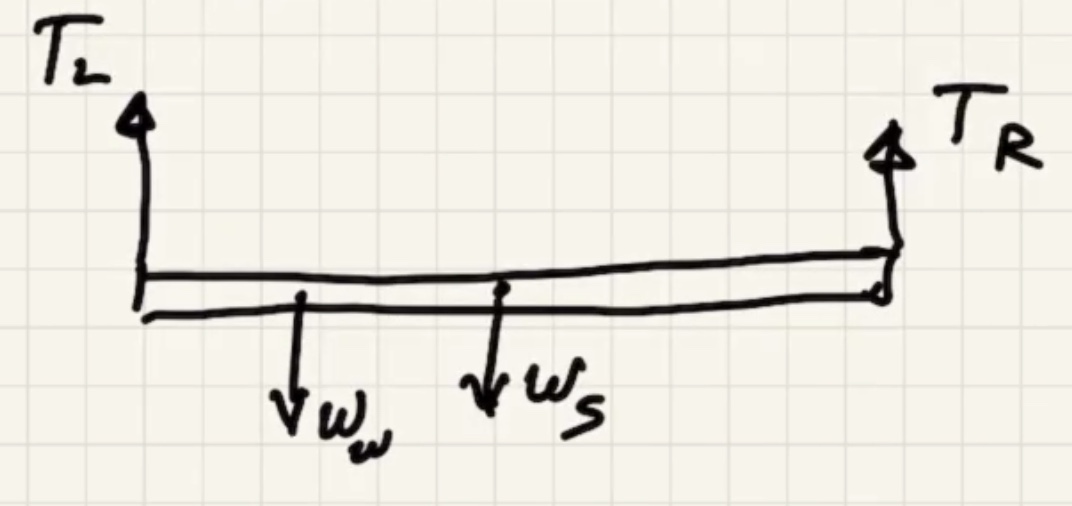 T_L
T_R
W_w
W_s